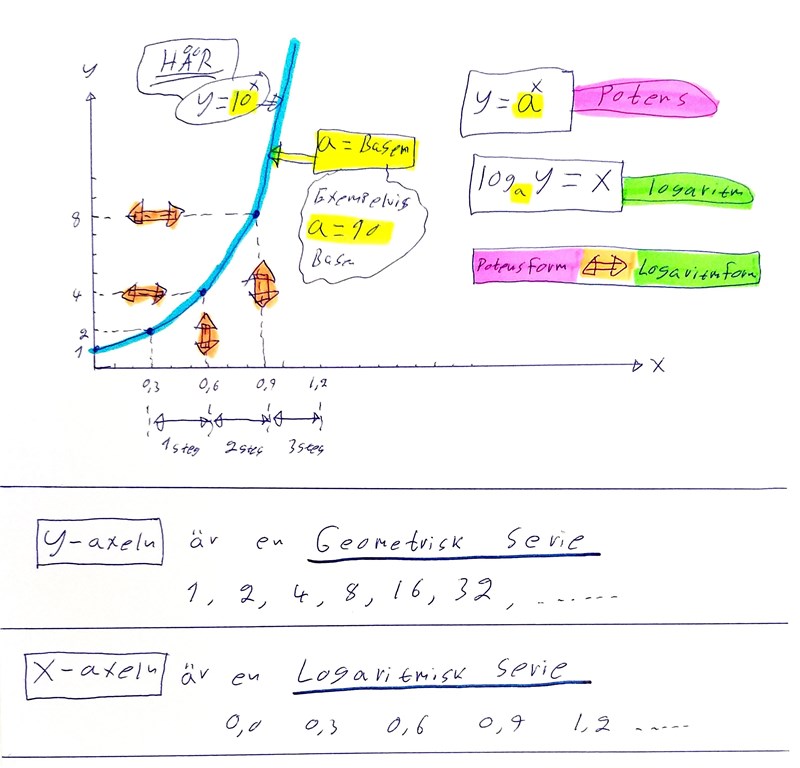 HÄR
y = 10^x
y
a = Basen
Exempelvis
a = 10
Basen
8
4
2
1
0,3 0,6 0,9 1,2
x
1 steg 2 steg 3 steg
y = a^x Potens
log_a y = x logaritm
Potensform ⇔ Logaritmform
y-axeln är en Geometrisk serie
1, 2, 4, 8, 16, 32, .......
X-axeln är en Logaritmisk serie
0,0 0,3 0,6 0,9 1,2 .....